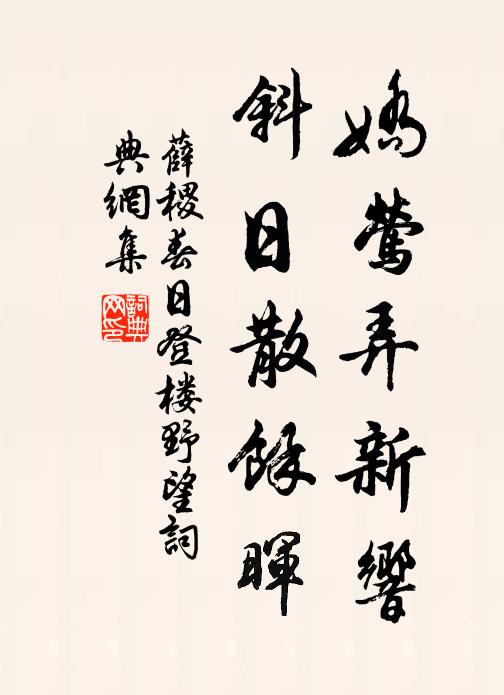 嬌鶯弄新響
斜日散餘暉
薛稷春日登楼野望詞
典網集
詞典網印